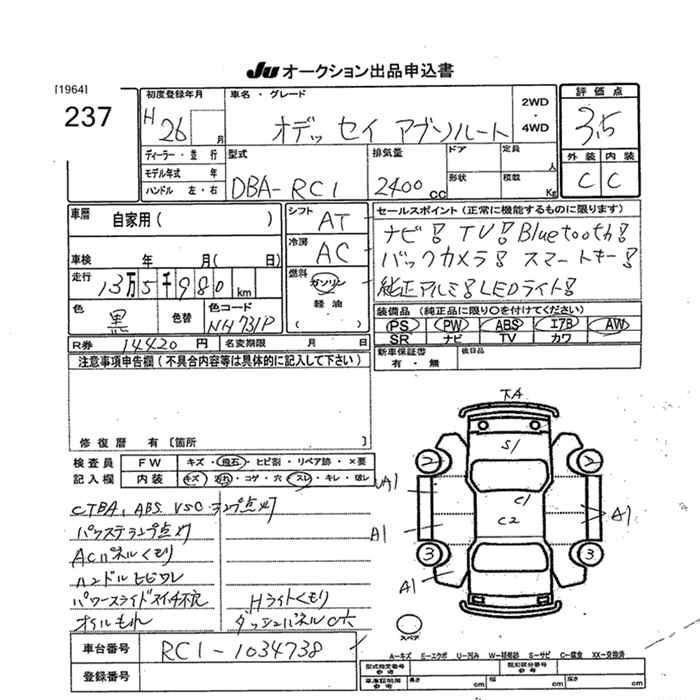 Ju オークション出品申込書
[1964]
237
初度登録年月
H 26 月
車名・グレード
オデッセイ アブソルート
2WD
・
4WD
評価点
3.5
外装 内装
C C
ディーラー・並行
モデル年式 年
ハンドル 左・右
型式
DBA-RC1
排気量
2400cc
ドア
形状
定員
人
積載
Kg
車歴
自家用( )
シフト
AT
冷房
AC
燃料
ガソリン
・
軽油
( )
車検 年 月( 日)
走行
13万5千980km
色
黒
色替
色コード
NH731P
R券 14420円
名変期限 月 日
セールスポイント(正常に機能するものに限ります)
ナビ! TV! Bluetooth!
バックカメラ! スマートキー!
純正アルミ! LEDライト!
装備品(純正品に限り○を付けてください)
PS PW ABS エアB AW
SR ナビ TV カワ
新車保証書
有・無
後日品
注意事項申告欄(不具合内容等は具体的に記入して下さい)
修復歴 有〔箇所 〕
検査員
記入欄
FW キズ・飛石・ヒビ割・リペア跡・×要
内装 キズ・汚れ・コゲ・穴・スレ・キレ・破レ
CTBA、ABS VSC ランプ点灯
パワステランプ点灯
ACパネルくもり
ハンドルヒビワレ
パワースライドスイッチ不良
オイルもれ
Hライトくもり
ダッシュパネル穴
下A
S1
2 2
C1
C2
UA1
A1
A1
A1
3 3
スペア
車台番号 RC1-1034738
登録番号
A=キズ E=エクボ U=凹み W=経補跡 S=サビ C=腐食 XX=交換済
型式指定番号
参考
類別区分番号
参考
車庫証明用
参考
長さ cm 幅 cm 高さ cm